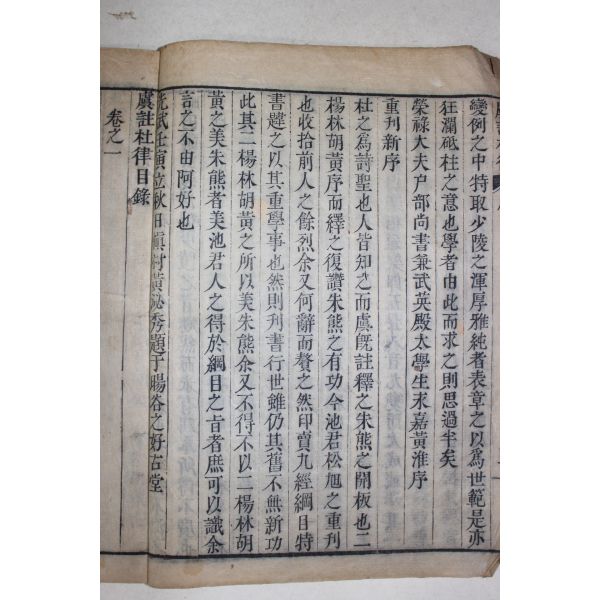 變例之中特取少陵之渾厚雅純者表章之以爲世範是亦
狂瀾砥柱之意也學者由此而求之則思過半矣
榮祿大夫户部尚書兼武英殿大學生求嘉黃淮序
重刊新序
杜之爲詩聖也人皆知之而虞旣註釋之朱熊之開板也二
楊林胡黃序而繹之復讚朱熊之有功今池君松旭之重刊
也收拾前人之餘烈余又何辭而贅之然印賣九經綱目特
書韙之以其重學事也然則刊書行世雖仍其舊不無新功
此其二楊林胡黃之所以美朱熊余又不得不以二楊林胡
黃之美朱熊者美池君人之得於綱目之旨者庶可以識余
言之不由阿好也
光武壬寅立秋日愼村黃泌秀題于暘谷之好古堂
虞註杜律目錄
卷之一